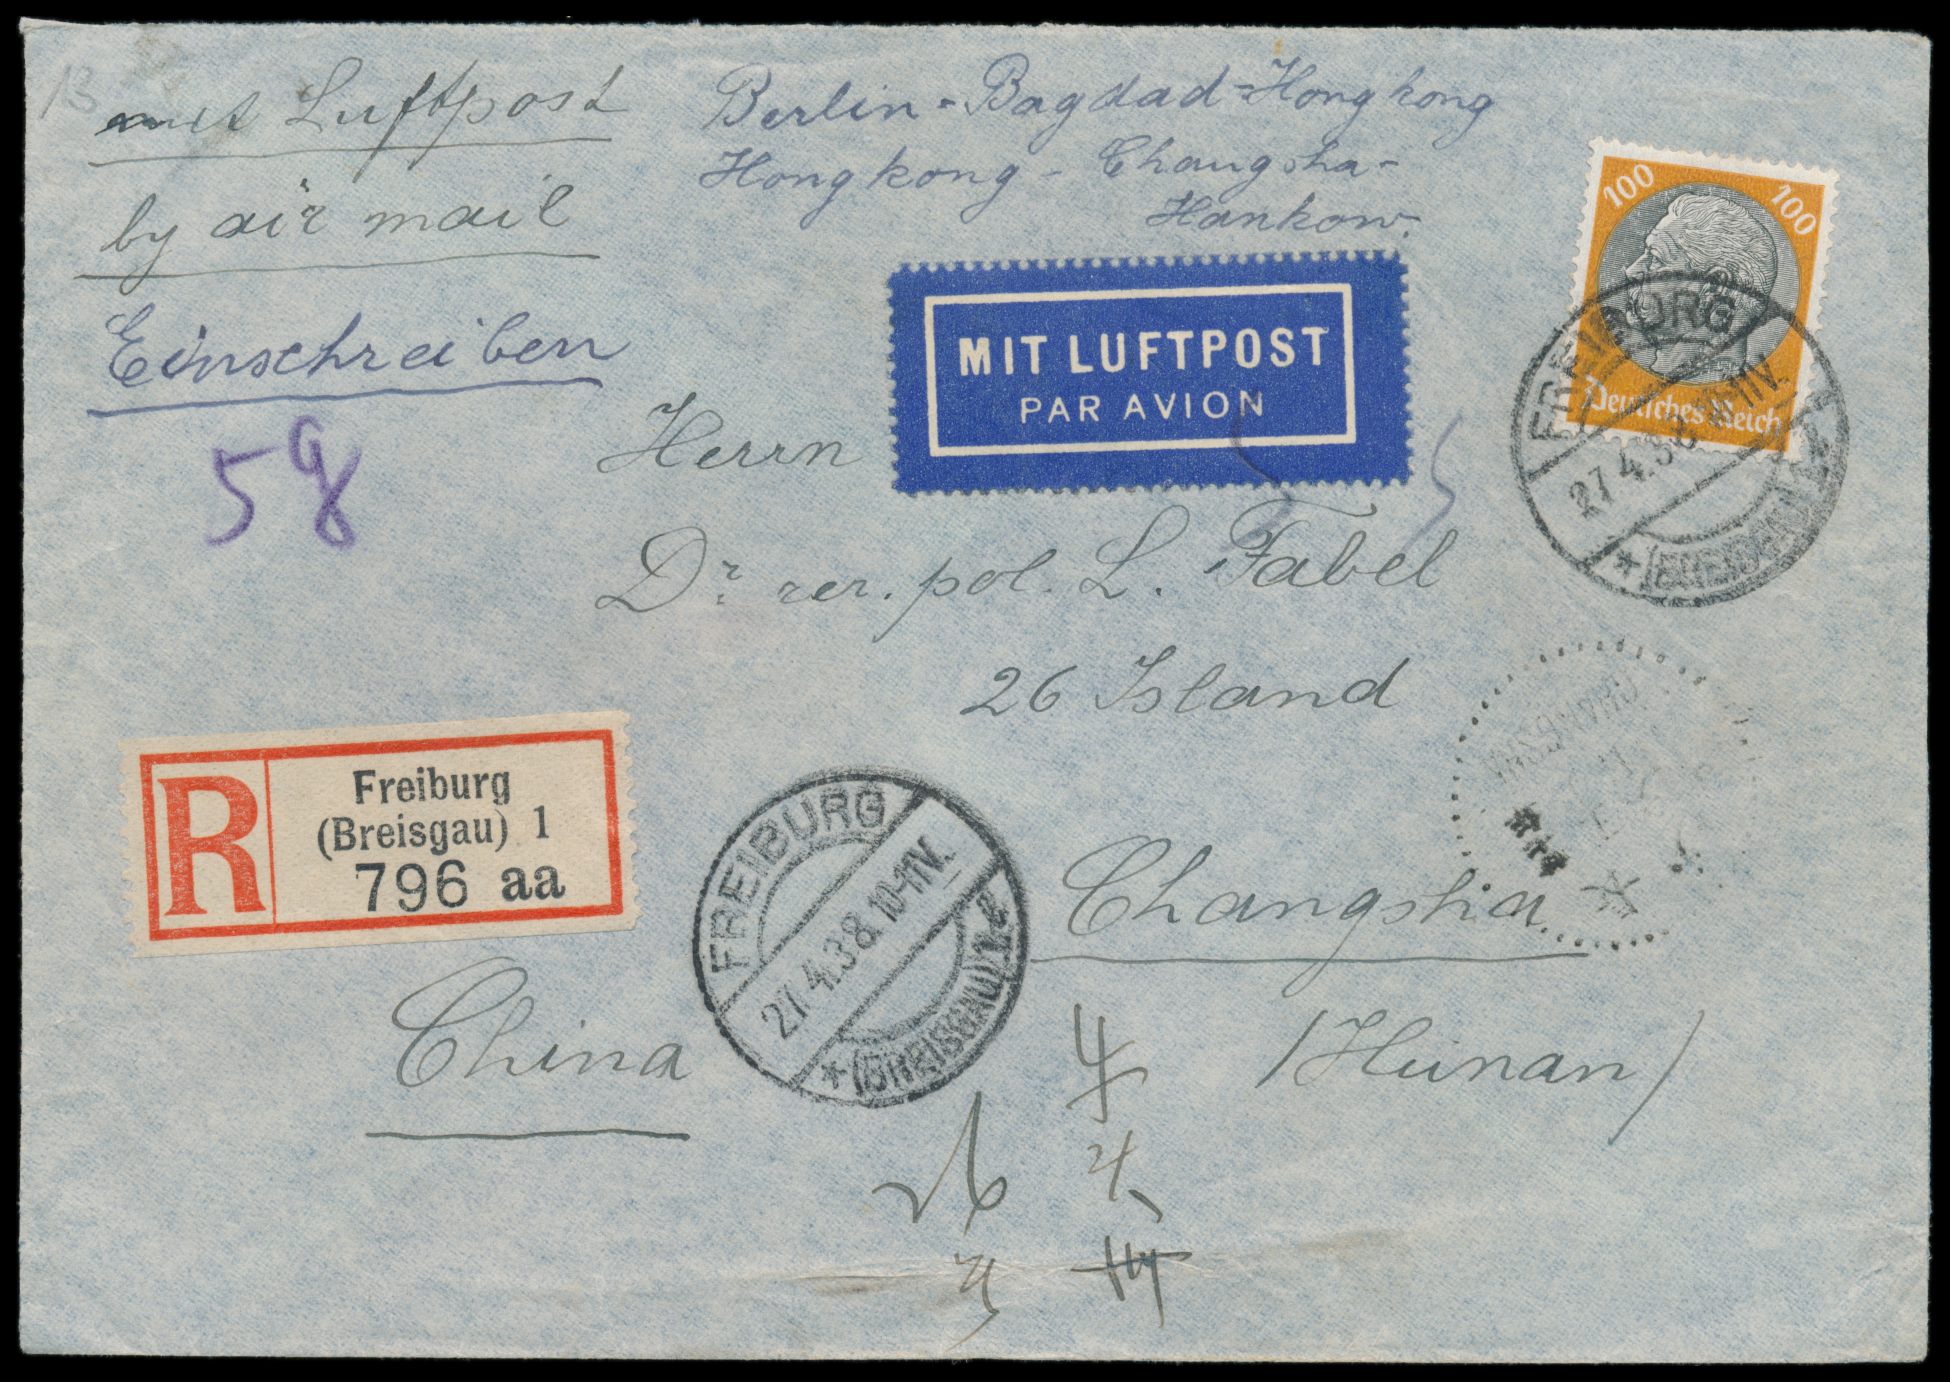 13
mit Luftpost
by air mail
Einschreiben
5g
Berlin - Bagdad - Hongkong
Hongkong - Changsha -
Hankow.
100 100
Deutsches Reich
FREIBURG
27.4.38. 10-11V.
* (BREISGAU) 1 e
MIT LUFTPOST
PAR AVION
Herrn
Dr. rer. pol. L. Fabel
26 Island
Changsha
(Hunan)
China
R
Freiburg
(Breisgau) 1
796 aa
FREIBURG
27.4.38. 10-11V.
* (BREISGAU) 1 e
CHANGSHA